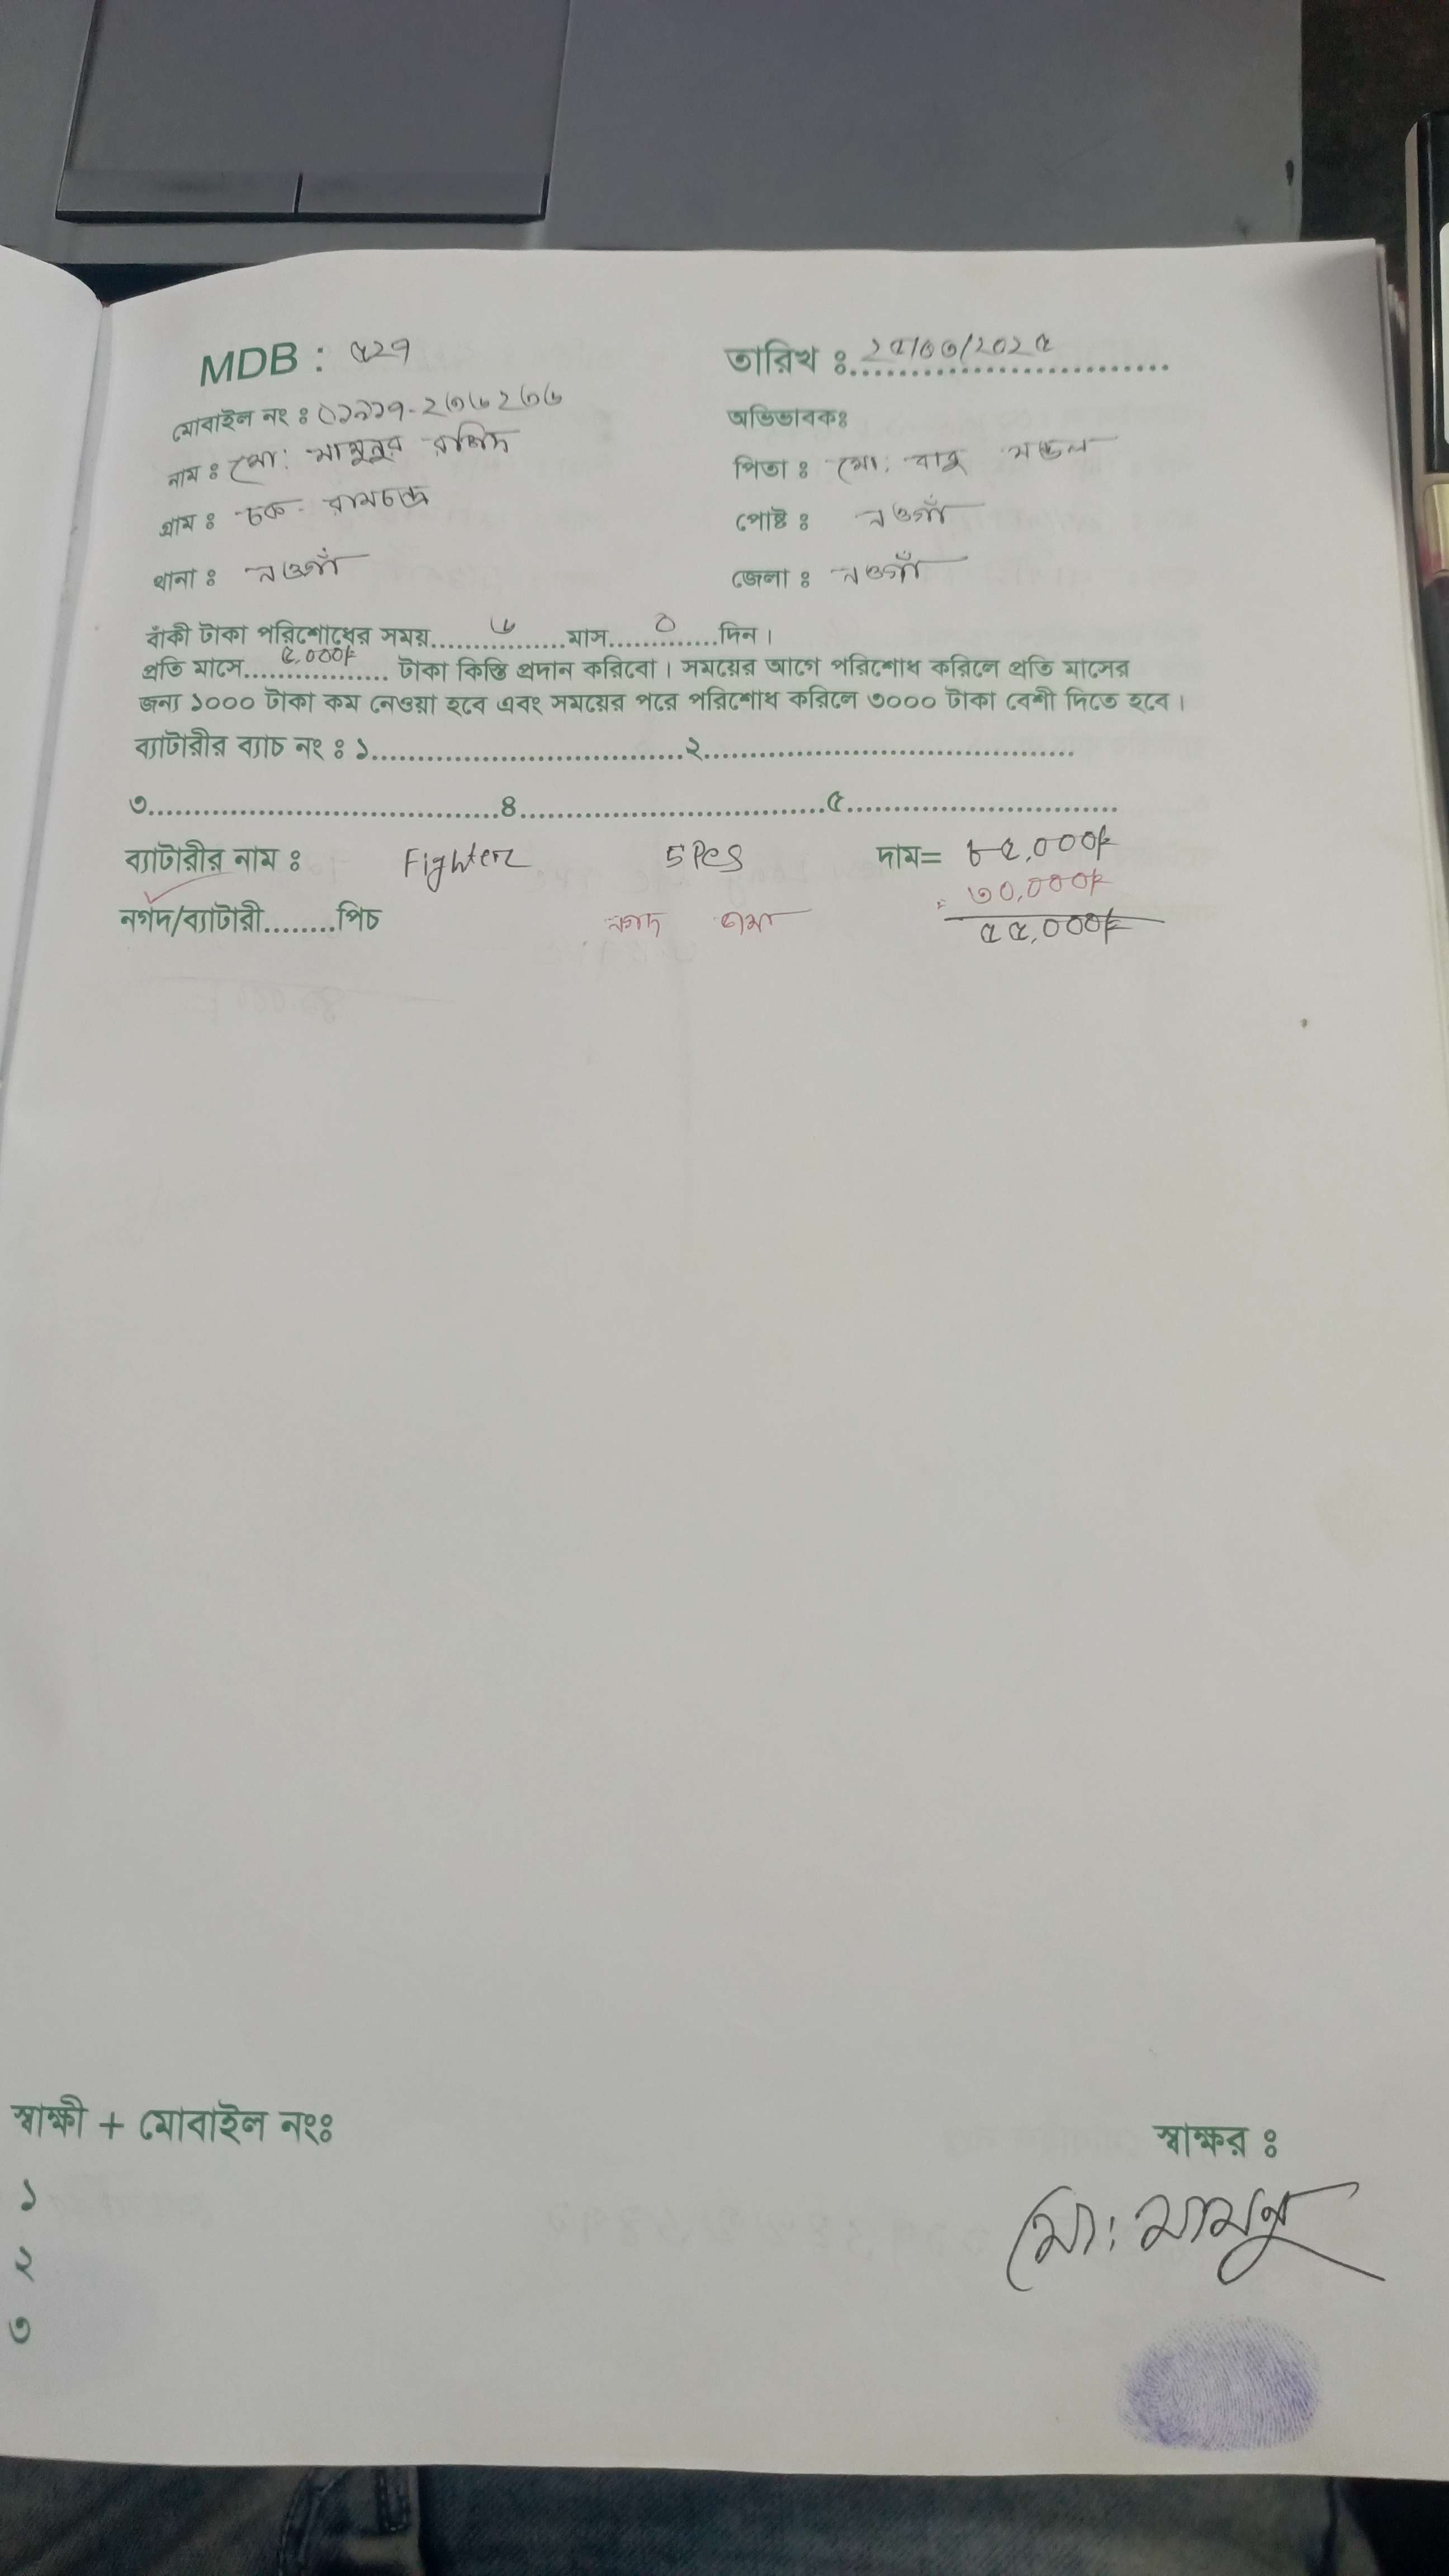 MDB : ৫২৭ তারিখ ঃ ২৫/০৩/২০২৫
মোবাইল নং ঃ ০১৯১৭-২৩৬২৩৬ অভিভাবকঃ
নাম ঃ মো: মামুনুর রশিদ পিতা ঃ মো: বাবু মন্ডল
গ্রাম ঃ চক- রামচন্দ্র পোষ্ট ঃ নওগাঁ
থানা ঃ নওগাঁ জেলা ঃ নওগাঁ
বাঁকী টাকা পরিশোধের সময়.......৬.......মাস.......০.......দিন।
প্রতি মাসে.......৫,০০০/=....... টাকা কিস্তি প্রদান করিবো। সময়ের আগে পরিশোধ করিলে প্রতি মাসের
জন্য ১০০০ টাকা কম নেওয়া হবে এবং সময়ের পরে পরিশোধ করিলে ৩০০০ টাকা বেশী দিতে হবে।
ব্যাটারীর ব্যাচ নং ঃ ১..................................২........................................
৩......................................৪.................................৫.............................
ব্যাটারীর নাম ঃ Fighter 5 Pcs দাম= ৮৫,০০০/=
৩০,০০০/=
নগদ/ব্যাটারী........পিচ নগদ জমা ৫৫,০০০/=
স্বাক্ষী + মোবাইল নংঃ
স্বাক্ষর ঃ
১
মো: মামুন
২
৩